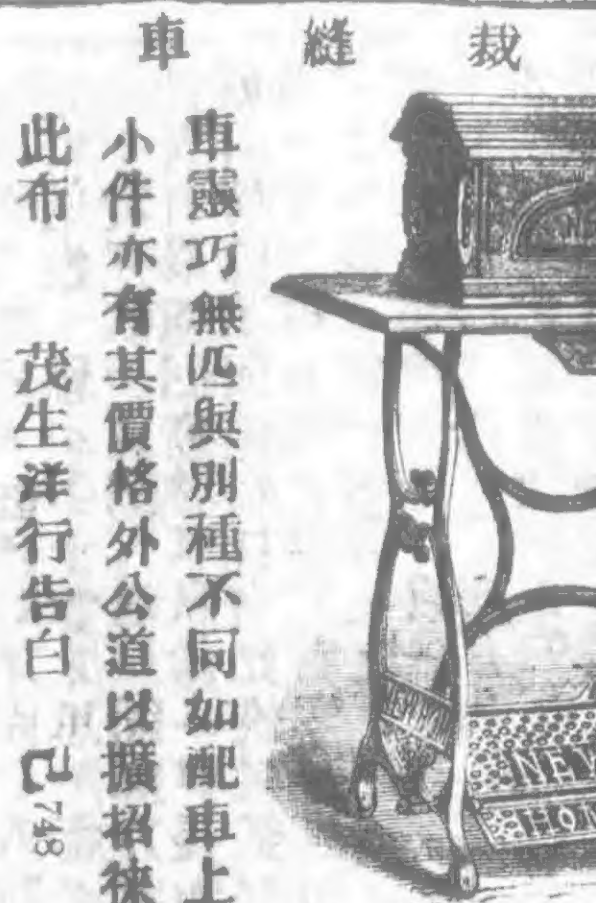 裁縫車
車靈巧無匹與別種不同如配車上
小件亦有其價格外公道以擴招徠
此布 茂生洋行告白 己 748
NEW
HOM